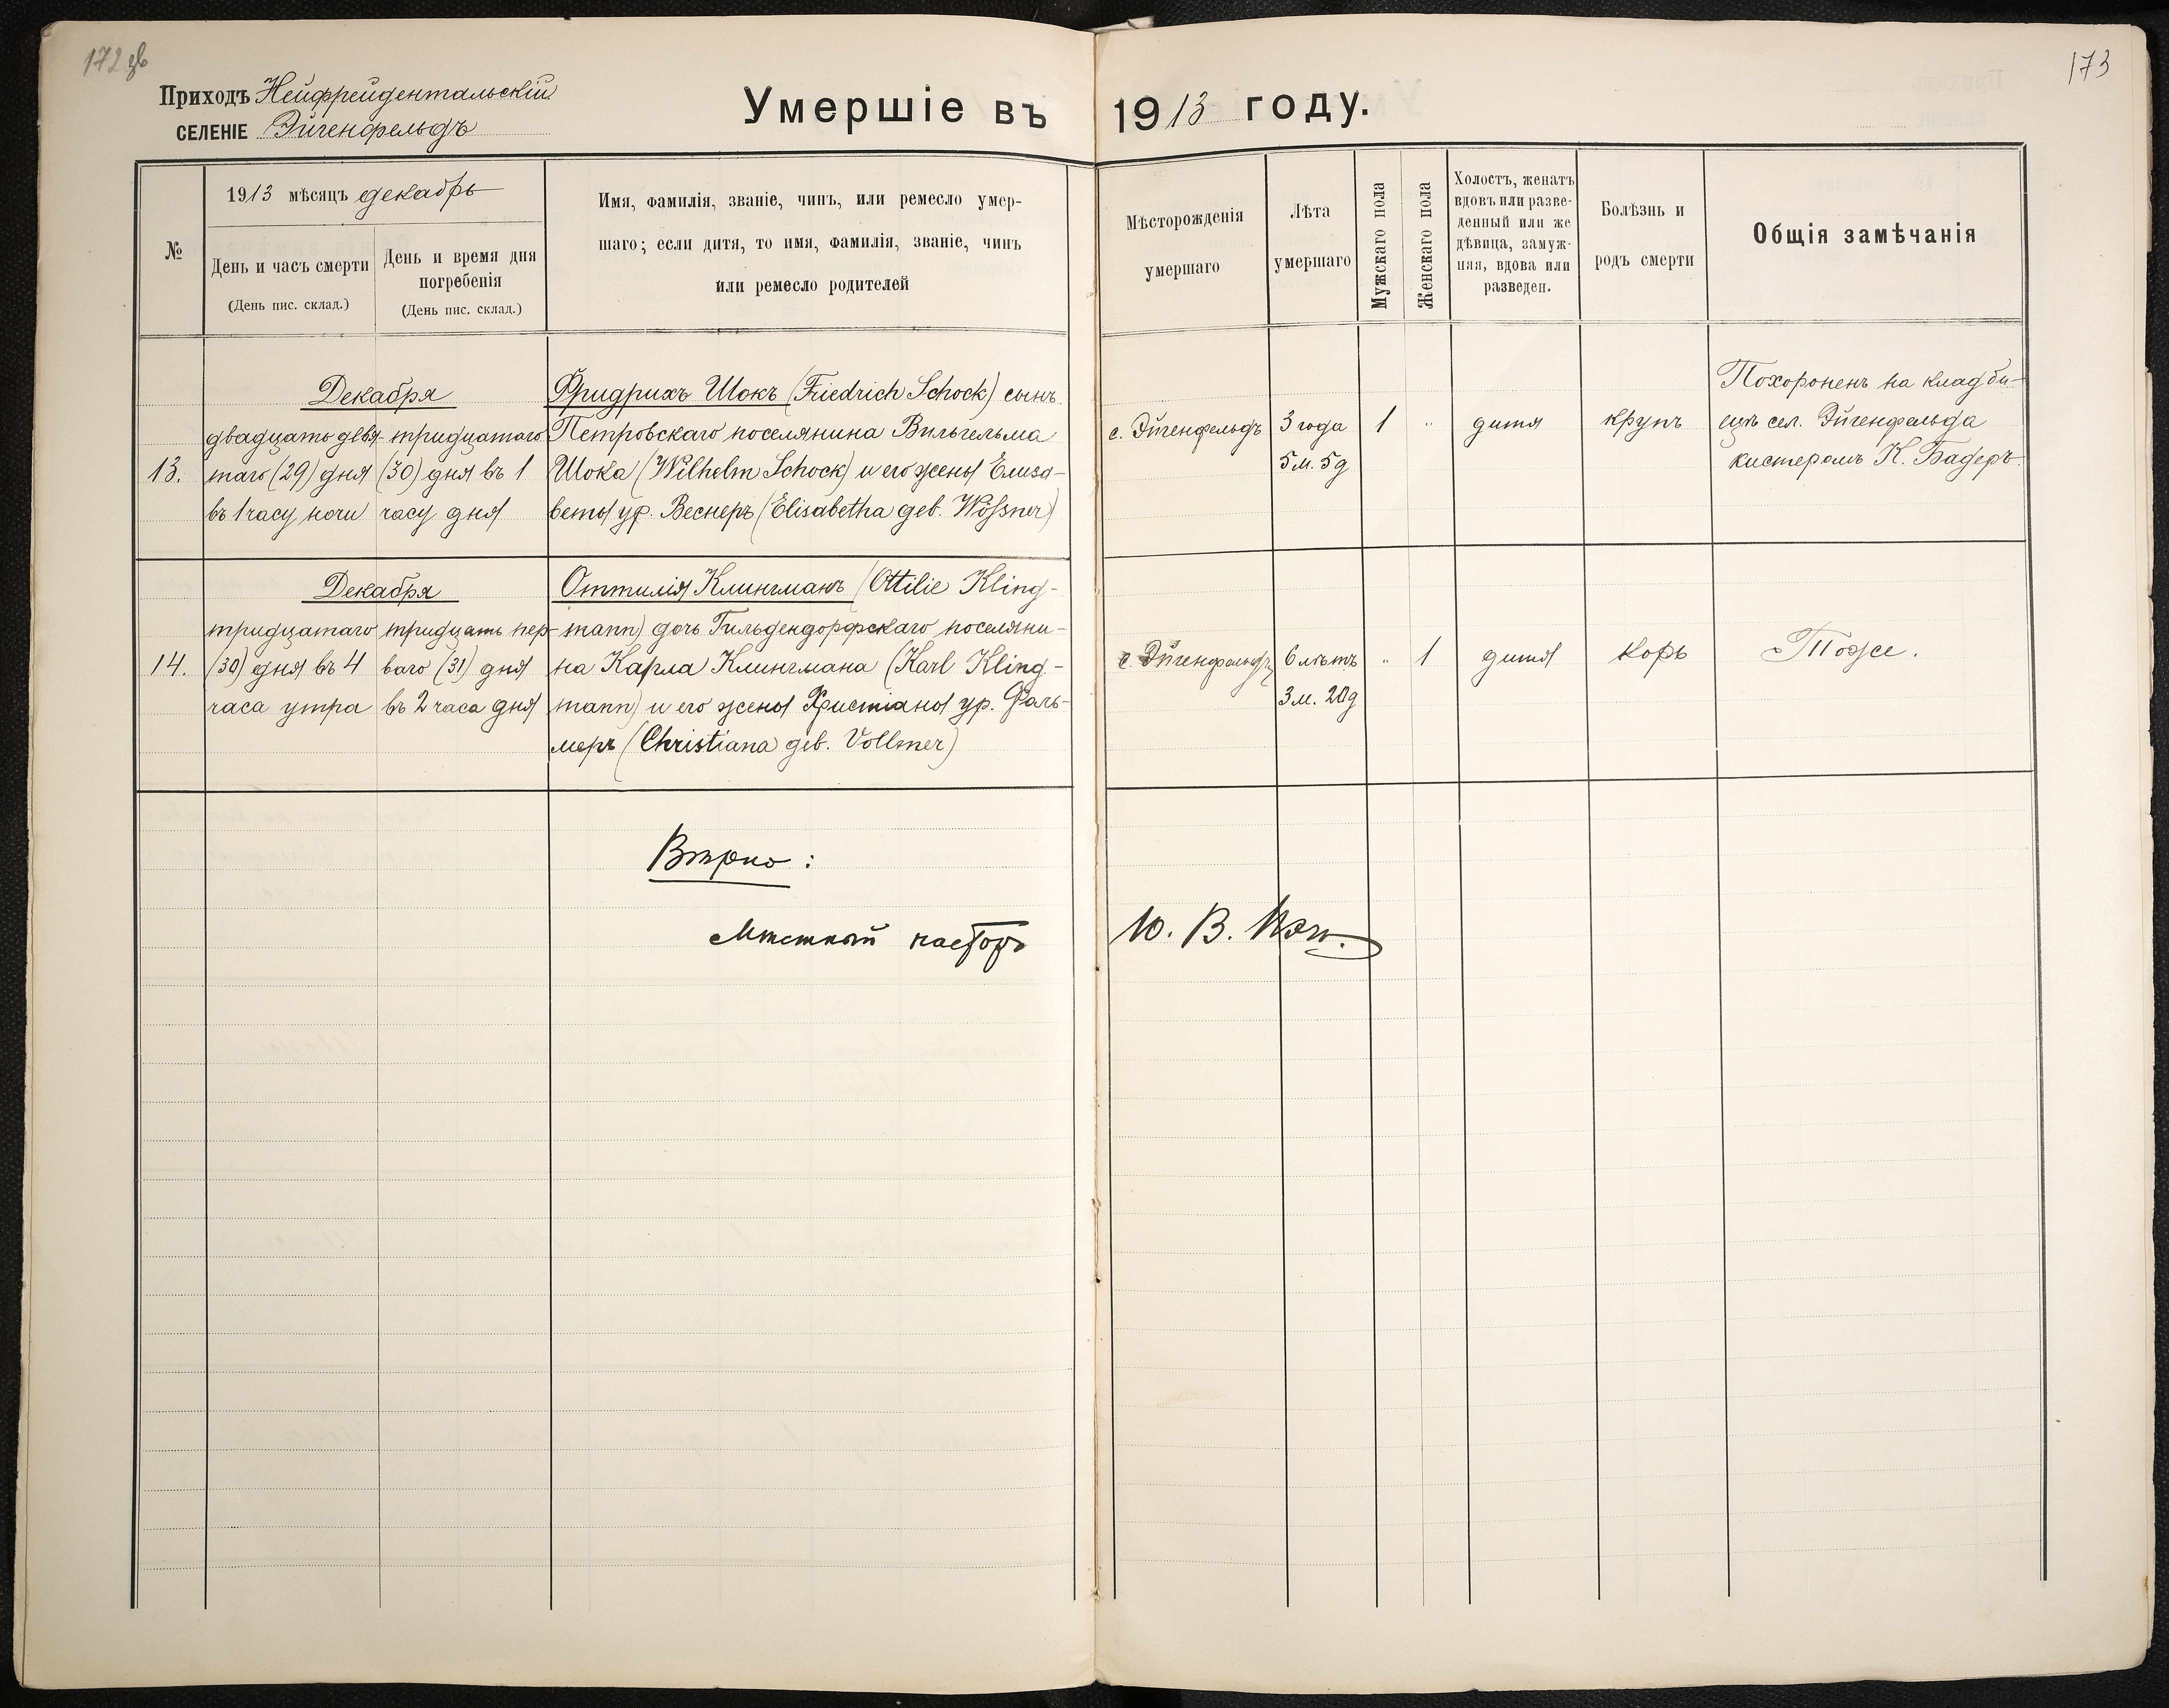 172 зв
173
Приходъ Нейфрейдентальскій
СЕЛЕНІЕ Эйгенфельдъ
Умершіе въ 1913 году.
№
1913 мѣсяцъ декабрь
День и часъ смерти
(День пис. склад.)
День и время дня
погребенія
(День пис. склад.)
Имя, фамилія, званіе, чинъ, или ремесло умер-
шаго; если дитя, то имя, фамилія, званіе, чинъ
или ремесло родителей
Мѣсторожденія
умершаго
Лѣта
умершаго
Мужскаго пола
Женскаго пола
Холостъ, женатъ
вдовъ или разве-
денный или же
дѣвица, замуж-
няя, вдова или
разведен.
Болѣзнь и
родъ смерти
Общія замѣчанія
13.
Декабря
двадцать девя-
таго (29) дня
въ 1 часу ночи
тридцатаго
(30) дня въ 1
часу дня
Фридрихъ Шокъ (Friedrich Schock) сынъ
Петровскаго поселянина Вильгельма
Шока (Wilhelm Schock) и его жены Елиза-
веты ур. Веснеръ (Elisabetha geb. Wößner)
с. Эйгенфельдъ
3 года
5 м. 5 д
1
"
дитя
крупъ
Похороненъ на кладби-
щѣ сел. Эйгенфельда
кистеромъ К. Бадеръ.
14.
Декабря
тридцатаго
(30) дня въ 4
часа утра
тридцать пер-
ваго (31) дня
въ 2 часа дня
Оттилія Клингманъ (Ottilie Kling-
mann) дочь Гильдендорфскаго поселяни-
на Карла Клингмана (Karl Kling-
mann) и его жены Христіаны ур. Фоль-
меръ (Christiana geb. Vollmer)
с. Эйгенфельдъ
6 лѣтъ
3 м. 20 д
"
1
дитя
корь
Тоже.
Вѣрно:
Мѣстный пасторъ Ю. В.